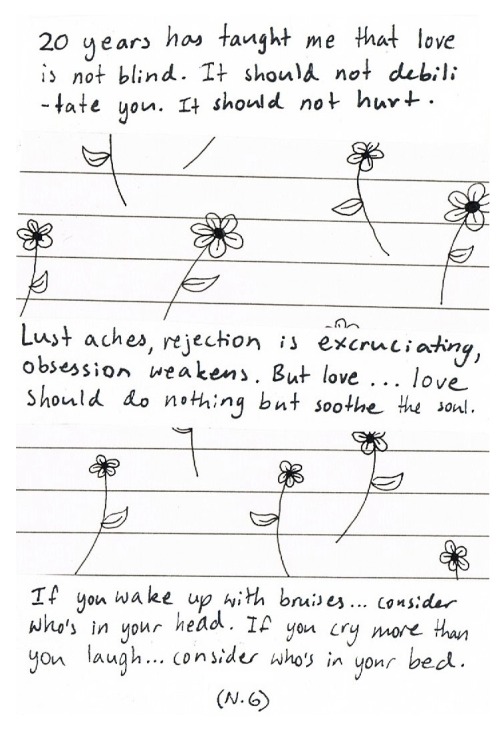 20 years has taught me that love
is not blind. It should not debili
-tate you. It should not hurt.
Lust aches, rejection is excruciating,
obsession weakens. But love ... love
should do nothing but soothe the soul.
If you wake up with bruises... consider
who's in your head. If you cry more than
you laugh... consider who's in your bed.
(N.G)